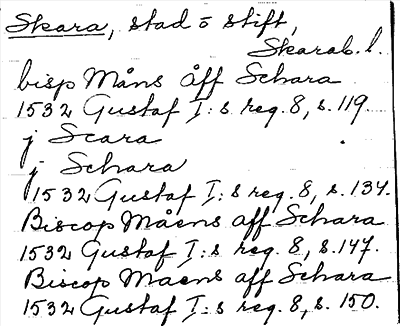 Skara, stad o stift,
Skarab. l.
bisp Måns åff Schara
1532 Gustaf I:s reg. 8, s. 119.
j Scara
j Schara
1532 Gustaf I:s reg. 8, s. 134.
Biscop Måens aff Schara
1532 Gustaf I:s reg. 8, s. 147.
Biscop Maens aff Schara
1532 Gustaf I:s reg. 8, s. 150.